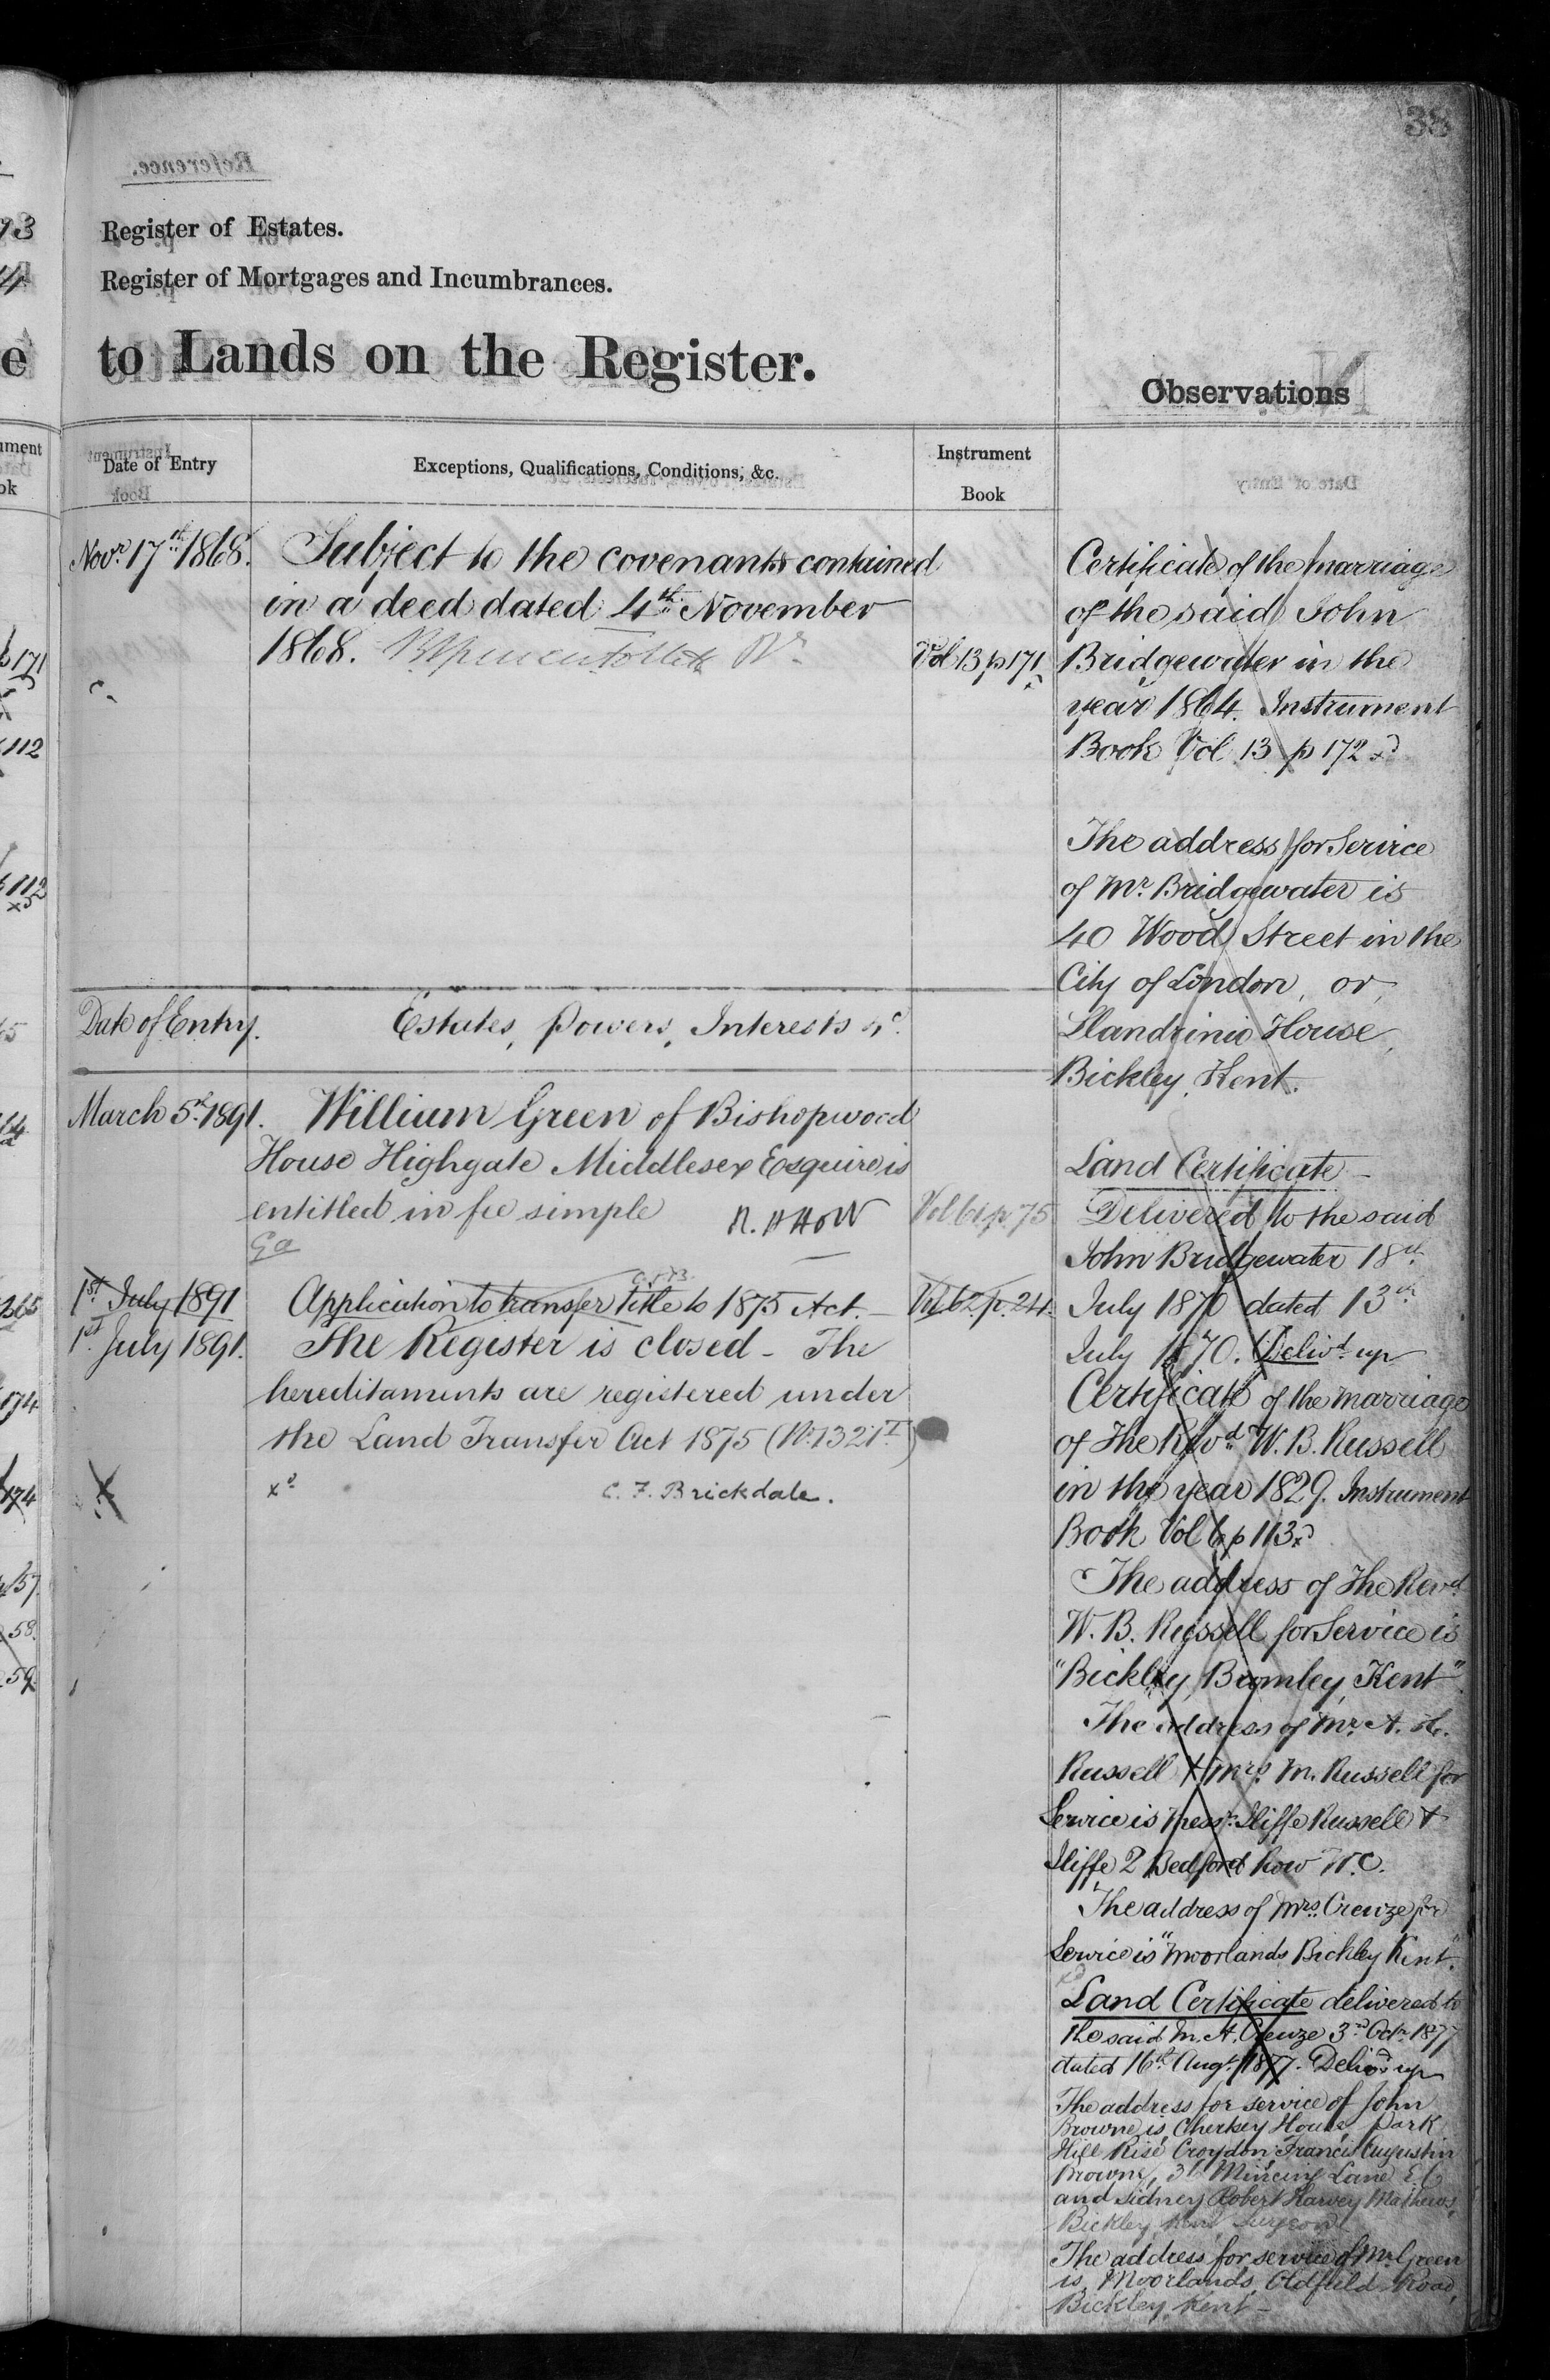 38
Register of Estates.
Register of Mortgages and Incumbrances.
to Lands on the Register.
Observations
Date of Entry
Exceptions, Qualifications, Conditions, &c.
Instrument
Book
Novr. 17th 1868.
Subject to the covenants contained
in a deed dated 4th November
1868.
Vol 13 p 171
Date of Entry.
Estates, Powers, Interests &c.
March 5th 1891.
William Green of Bishopwood
House Highgate Middlesex Esquire is
entitled in fee simple
Vol 61 p. 75
1st July 1891
Application to transfer title to 1875 Act. —
Vol 62 p. 24.
1st July 1891.
The Register is closed - The
hereditaments are registered under
the Land Transfer Act 1875 (No. 1321 I)
C. F. Brickdale.
Certificate of the marriage
of the said John
Bridgewater in the
year 1864. Instrument
Book Vol 13 p 172
The address for Service
of Mr. Bridgewater is
40 Wood Street in the
City of London, or,
Llandrinio House,
Bickley, Kent.
Land Certificate —
Delivered to the said
John Bridgewater 18th
July 1870 dated 13th
July 1870. Delivd. up
Certificate of the marriage
of The Revd. W. B. Russell
in the year 1829. Instrument
Book Vol 6 p 113
The address of The Revd
W. B. Russell for Service is
"Bickley, Bromley, Kent".
The address of Mr. A. H.
Russell & Mrs. M. Russell for
Service is Messrs. Iliffe Russell &
Iliffe 2 Bedford Row W.C.
The address of Mrs. Creuze for
Service is "Moorlands Bickley Kent".
Land Certificate delivered to
the said M. A. Creuze 3rd Octr. 1877
dated 16th Augt. 1877. Delivd. up
The address for service of John
Browne is, House Park
Hill Rise Croydon; Francis Augustin
Browne, Mincing Lane E.C
and Sidney Robert Harvey Mathews,
Bickley, Kent Surgeon
The address for service of Mr. Green
is, Moorlands, Oldfield Road,
Bickley, Kent —